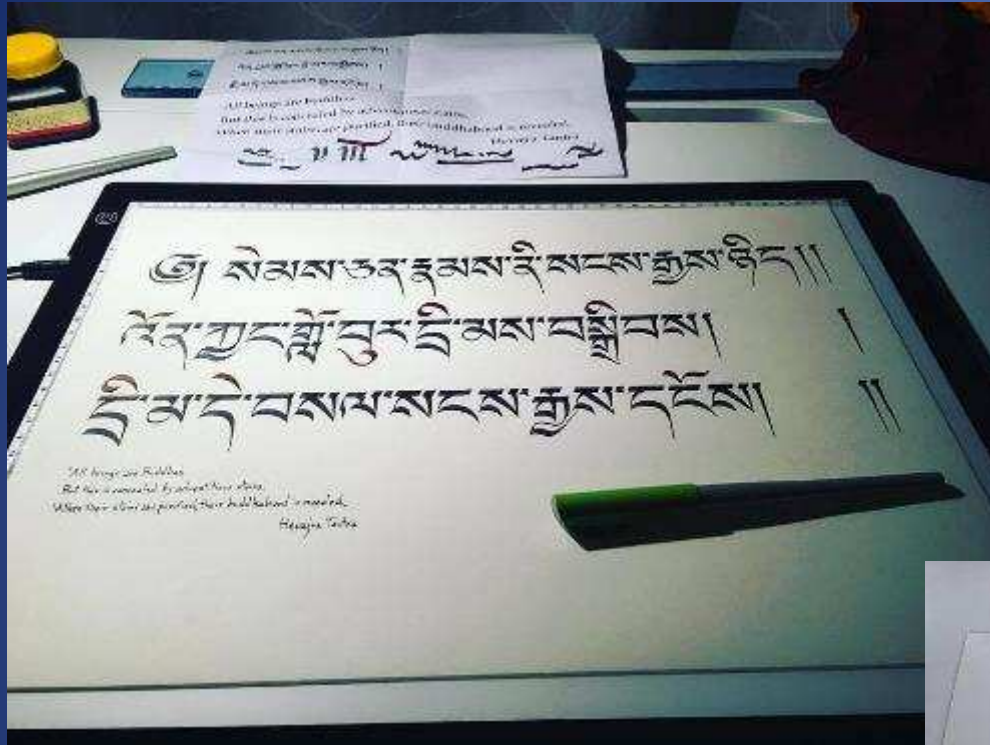 All beings are Buddhas
But this is concealed by adventitious stains.
When their stains are purified, their buddhahood is revealed.
Hevajra Tantra
༄། སེམས་ཅན་རྣམས་ནི་སངས་རྒྱས་ཉིད།།
འོན་ཀྱང་གློ་བུར་དྲི་མས་བསྒྲིབས། །
དྲི་མ་དེ་བསལ་སངས་རྒྱས་དངོས། །།
"All beings are Buddhas
But this is concealed by adventitious stains,
When their stains are purified, their buddhahood is revealed.
Hevajra Tantra